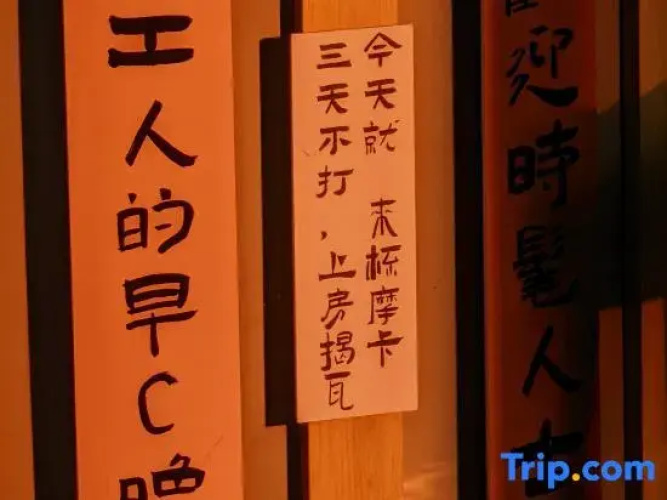 迎時髦人
今天就 来杯摩卡
三天不打，上房揭瓦
工人的早C晚
Trip.com